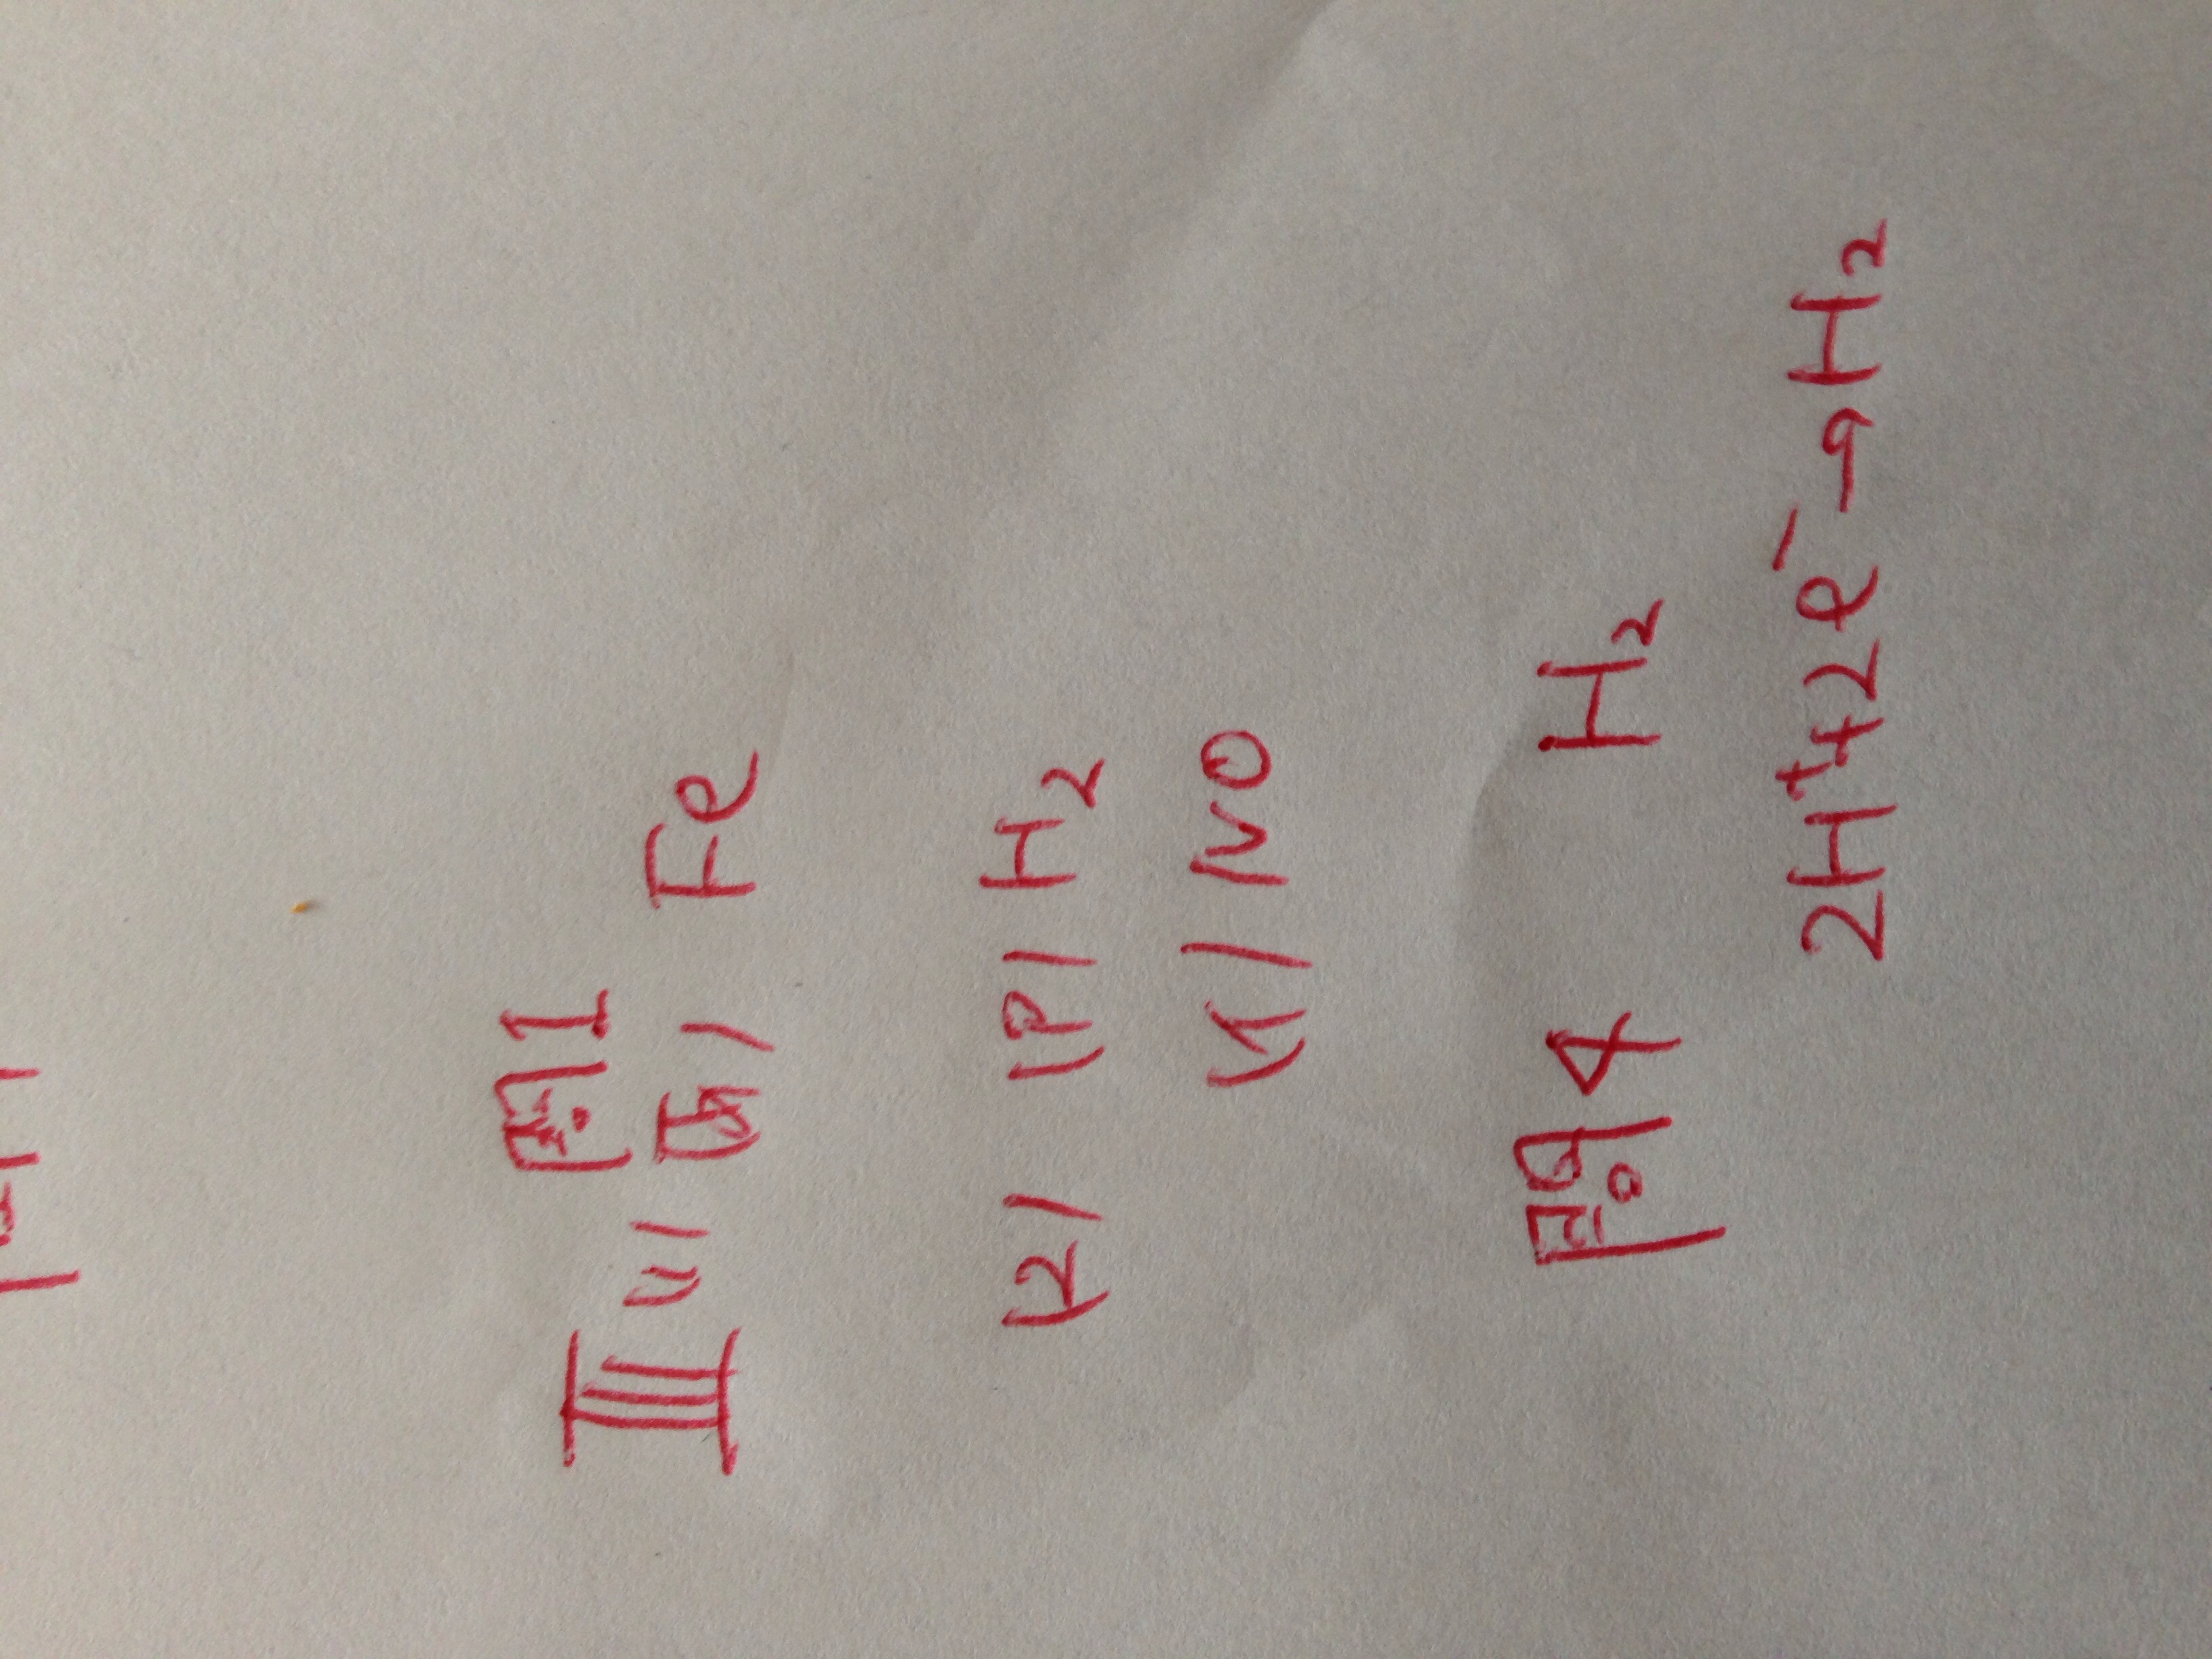 III 問1
(1) Fe
(2) (ア) H₂
(イ) NO
問4 H₂
2H⁺+2e⁻→H₂